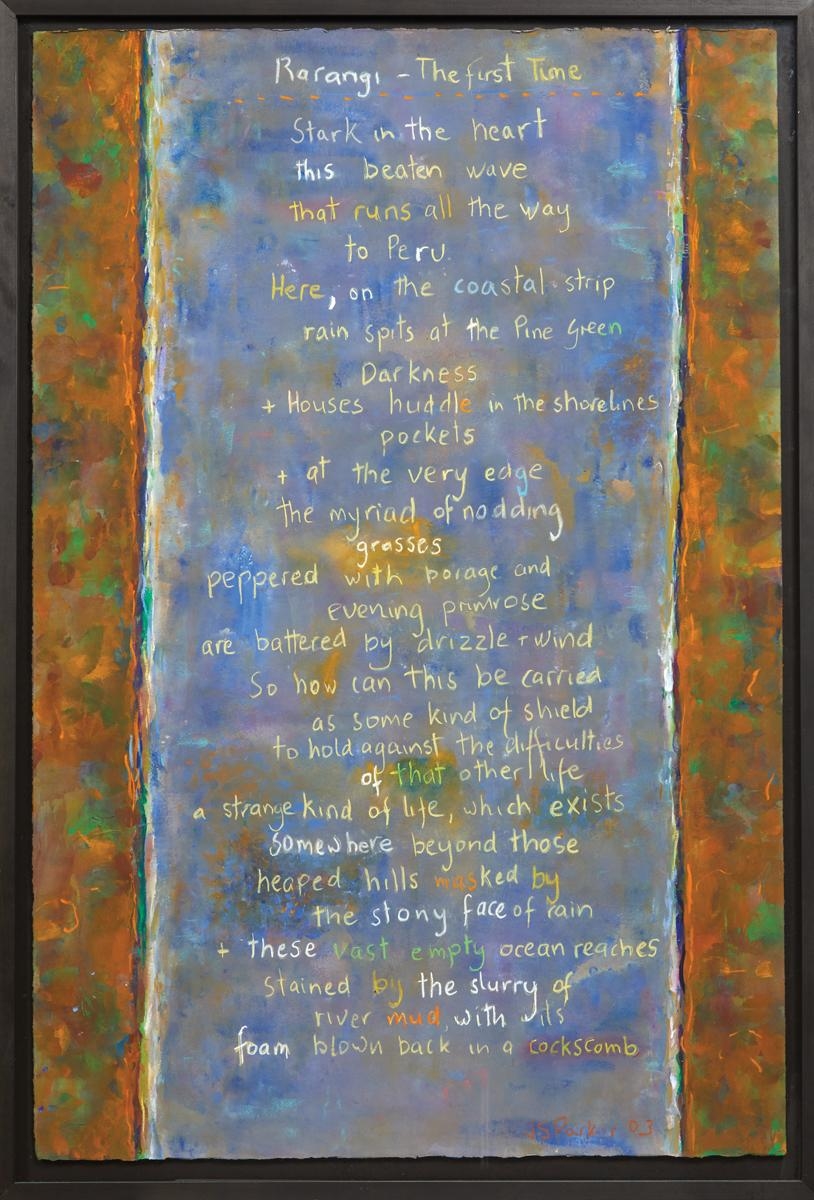 Rarangi - The first Time
Stark in the heart
this beaten wave
that runs all the way
to Peru.
Here, on the coastal strip
rain spits at the Pine Green
Darkness
+ Houses huddle in the shorelines
pockets
+ at the very edge
the myriad of nodding
grasses
peppered with borage and
evening primrose
are battered by drizzle + wind
So how can this be carried
as some kind of shield
to hold against the difficulties
of that other life
a strange kind of life, which exists
Somewhere beyond those
heaped hills masked by
the stony face of rain
+ these vast empty ocean reaches
stained by the slurry of
river mud, with its
foam blown back in a cockscomb
JS Parker 03